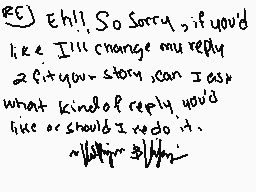 RE) Eh!! So Sorry, if you'd
like I'll change my reply
2 fit your story, can I ask
what kind of reply you'd
like or should I redo it.